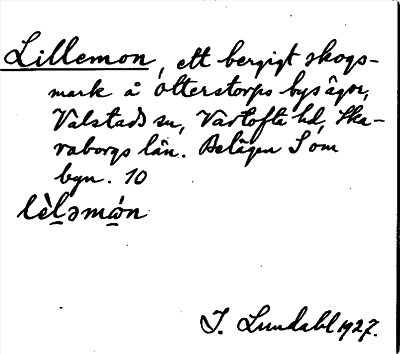 Lillemon, ett bergigt skogs-
mark å Otterstorps bys ägor,
Valstads sn, Vartofta hd, Ska-
raborgs län. Belägen S om
byn. 10
lèləmón
I. Lundahl 1927.